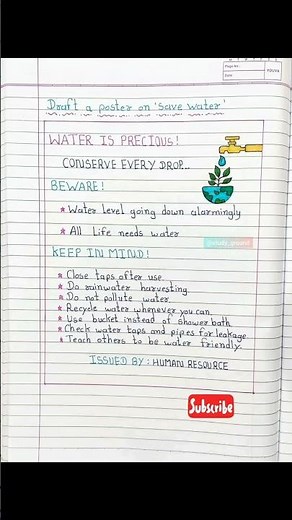 Page No.:
Date:
YOUVA
Draft a poster on 'Save Water'
WATER IS PRECIOUS!
CONSERVE EVERY DROP...
BEWARE!
* Water level going down alarmingly
* All Life needs water
KEEP IN MIND!
* Close taps after use.
* Do rainwater harvesting.
* Do not pollute water.
* Recycle water whenever you can.
* Use bucket instead of shower bath.
* Check water taps and pipes for leakage.
* Teach others to be water friendly.
ISSUED BY : HUMAN RESOURCE
Subscribe